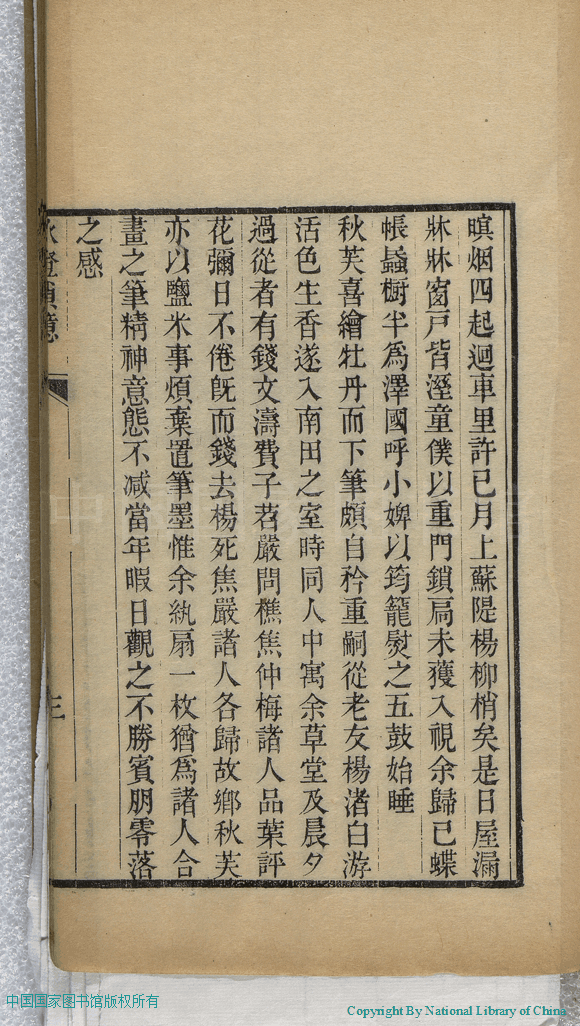 暝烟四起迴車里許已月上蘇隄楊柳梢矣是日屋漏
牀牀窗戶皆溼童僕以重門鎖扃未獲入視余歸已蝶
帳蟁橱半為澤國呼小婢以筠籠熨之五鼓始睡
秋芙喜繪牡丹而下筆頗自矜重嗣從老友楊渚白游
活色生香遂入南田之室時同人中寓余草堂及晨夕
過從者有錢文濤費子苕嚴問樵焦仲梅諸人品葉評
花彌日不倦旣而錢去楊死焦嚴諸人各歸故鄉秋芙
亦以鹽米事煩棄置筆墨惟余紈扇一枚猶為諸人合
畫之筆精神意態不减當年暇日觀之不勝賓朋零落
之感
三
中国国家图书馆版权所有
Copyright By National Library of China